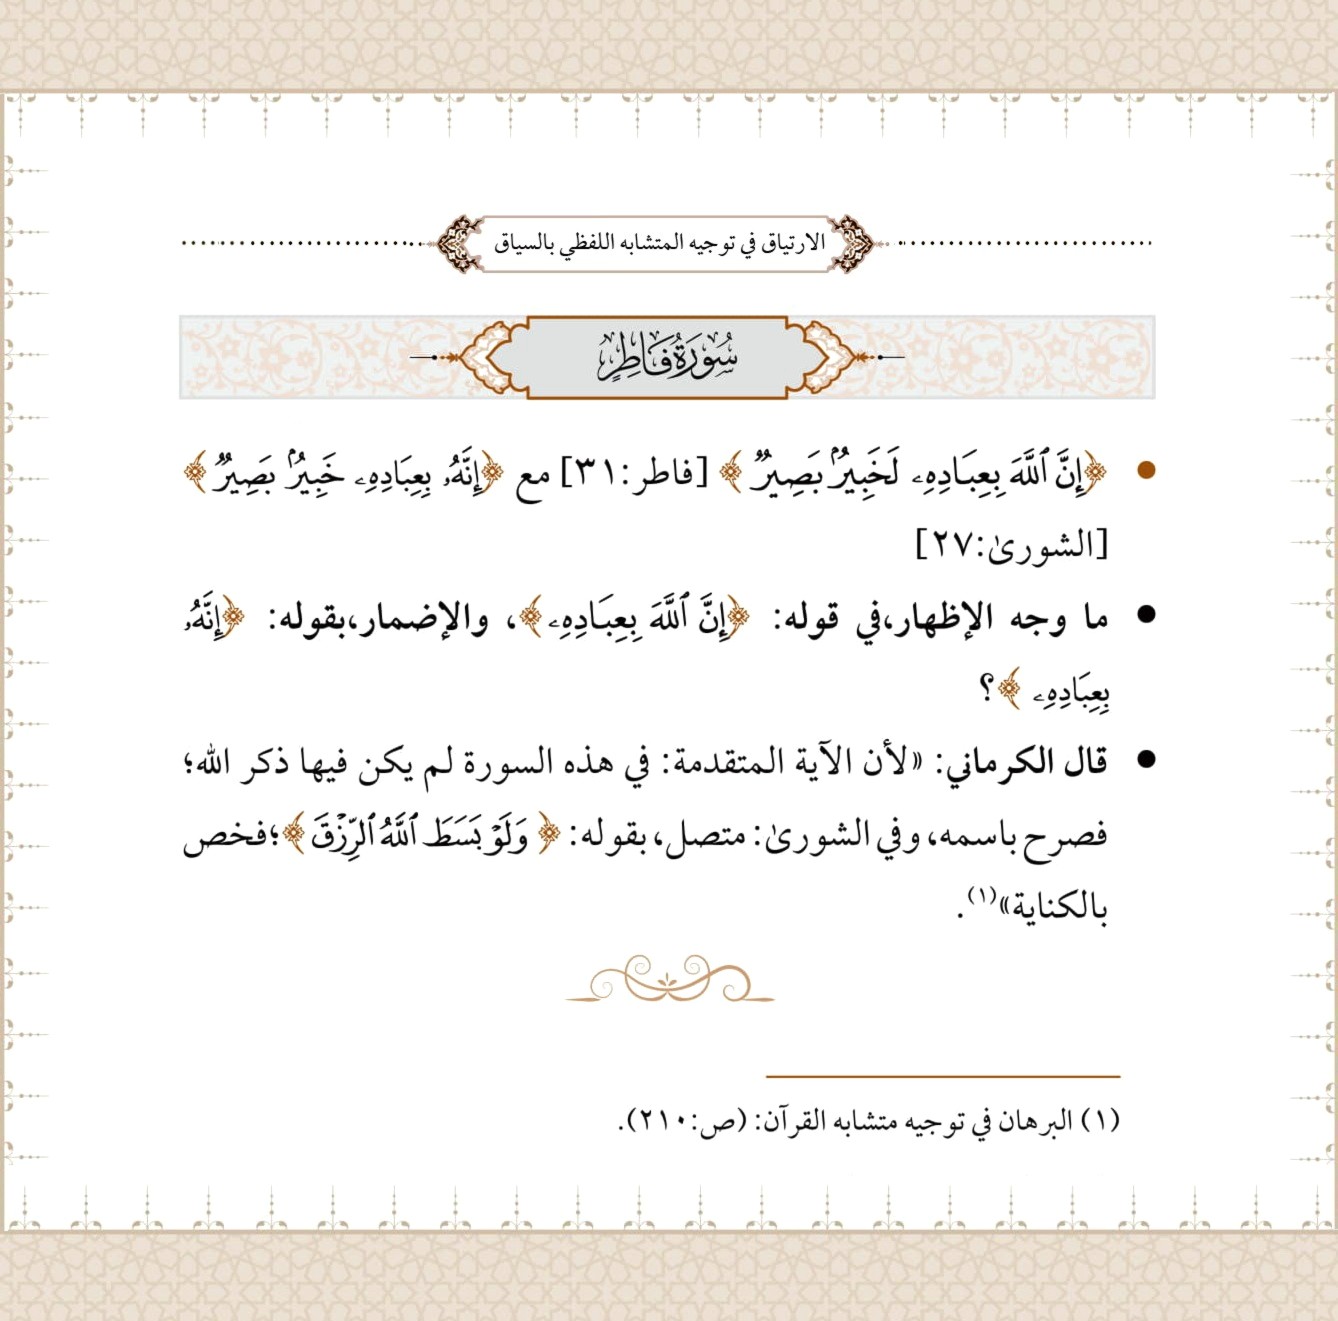 الارتياق في توجيه المتشابه اللفظي بالسياق
سُورَةُ فَاطِرٍ
﴿إِنَّ ٱللَّهَ بِعِبَادِهِۦ لَخَبِيرُۢ بَصِيرٌ﴾ [فاطر:٣١] مع ﴿إِنَّهُۥ بِعِبَادِهِۦ خَبِيرُۢ بَصِيرٌ﴾
[الشورىٰ:٢٧]
ما وجه الإظهار،في قوله: ﴿إِنَّ ٱللَّهَ بِعِبَادِهِۦ﴾، والإضمار،بقوله: ﴿إِنَّهُۥ
بِعِبَادِهِۦ﴾؟
قال الكرماني: «لأن الآية المتقدمة: في هذه السورة لم يكن فيها ذكر الله؛
فصرح باسمه، وفي الشورىٰ: متصل، بقوله: ﴿وَلَوۡ بَسَطَ ٱللَّهُ ٱلرِّزۡقَ﴾؛فخص
بالكناية»(١).
(١) البرهان في توجيه متشابه القرآن: (ص:٢١٠).